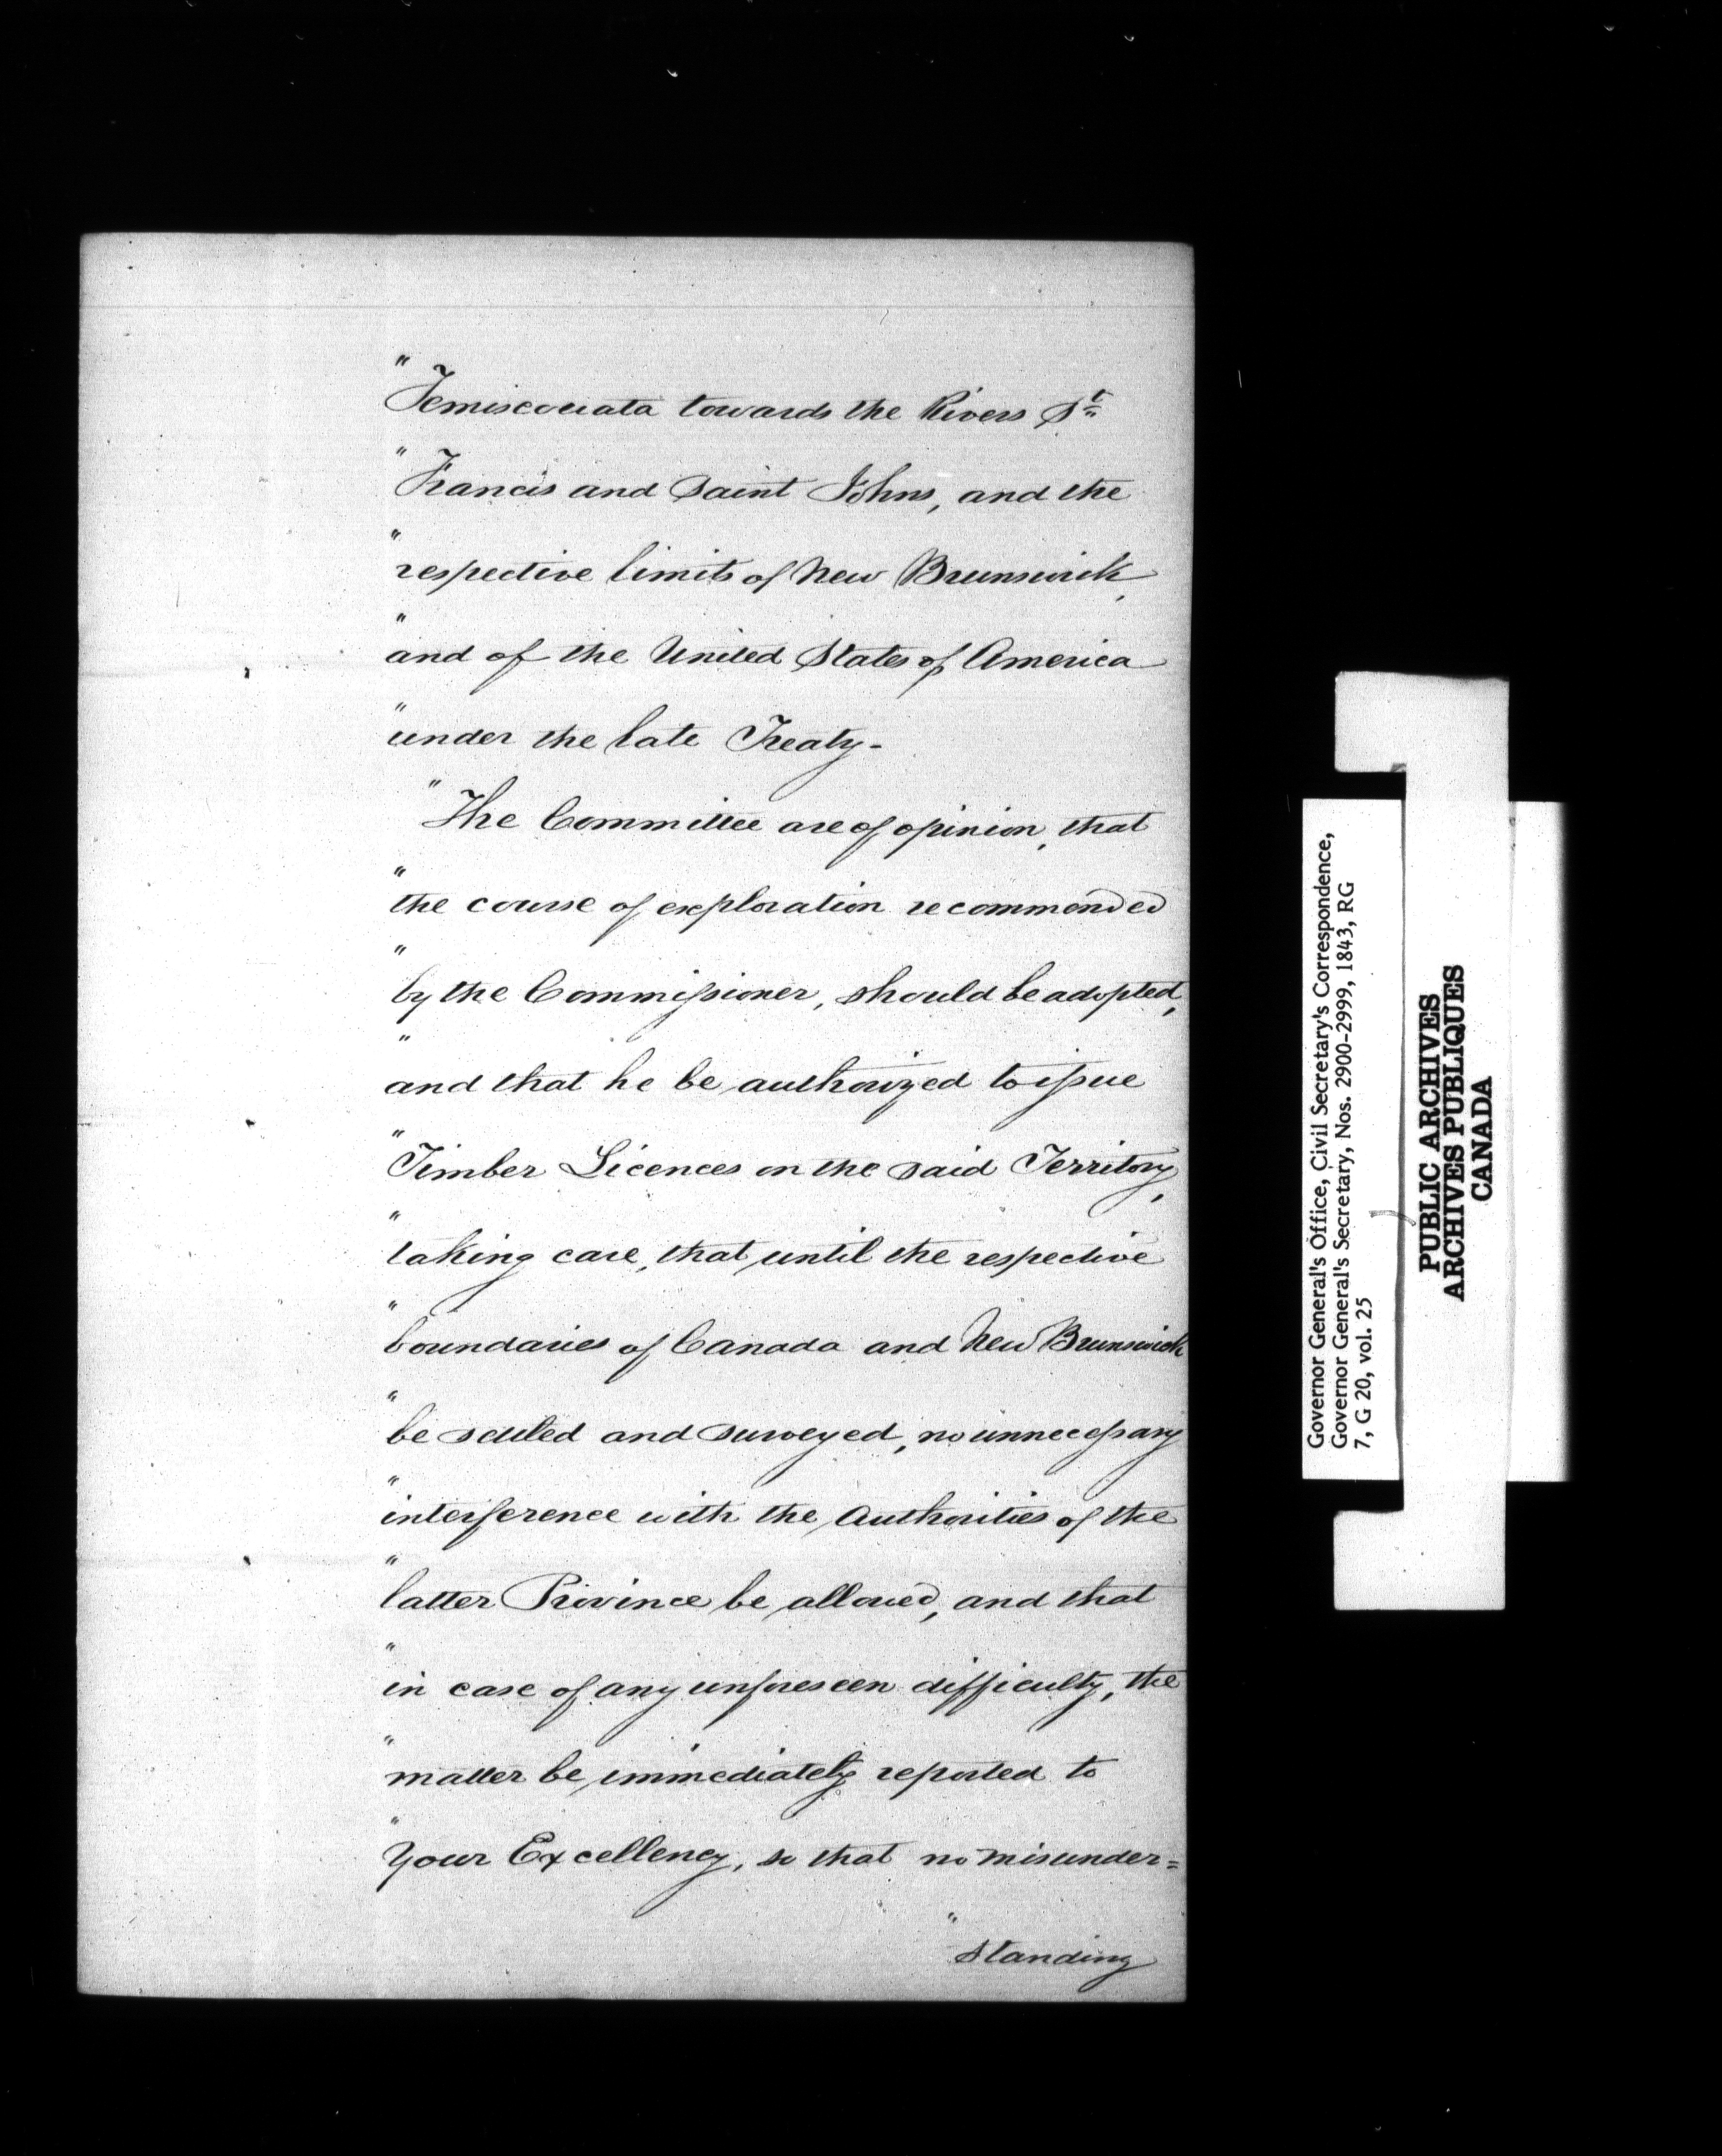 "Temiscouata towards the Rivers St
"Francis and Saint Johns, and the
"respective limits of New Brunswick,
"and of the United States of America
"under the late Treaty-
"The Committee are of opinion, that
"the course of exploration recommended
"by the Commissioner, should be adopted,
"and that he be authorized to issue
"Timber Licences on the said Territory,
"taking care, that until the respective
"boundaries of Canada and New Brunswick
"be settled and surveyed, no unnecessary
"interference with the Authorities of the
"latter Province be allowed, and that
"in case of any unforeseen difficulty, the
"matter be immediately reported to
"Your Excellency, so that no misunder=
"standing
Governor General's Office, Civil Secretary's Correspondence,
Governor General's Secretary, Nos. 2900-2999, 1843, RG
7, G 20, vol. 25
PUBLIC ARCHIVES
ARCHIVES PUBLIQUES
CANADA